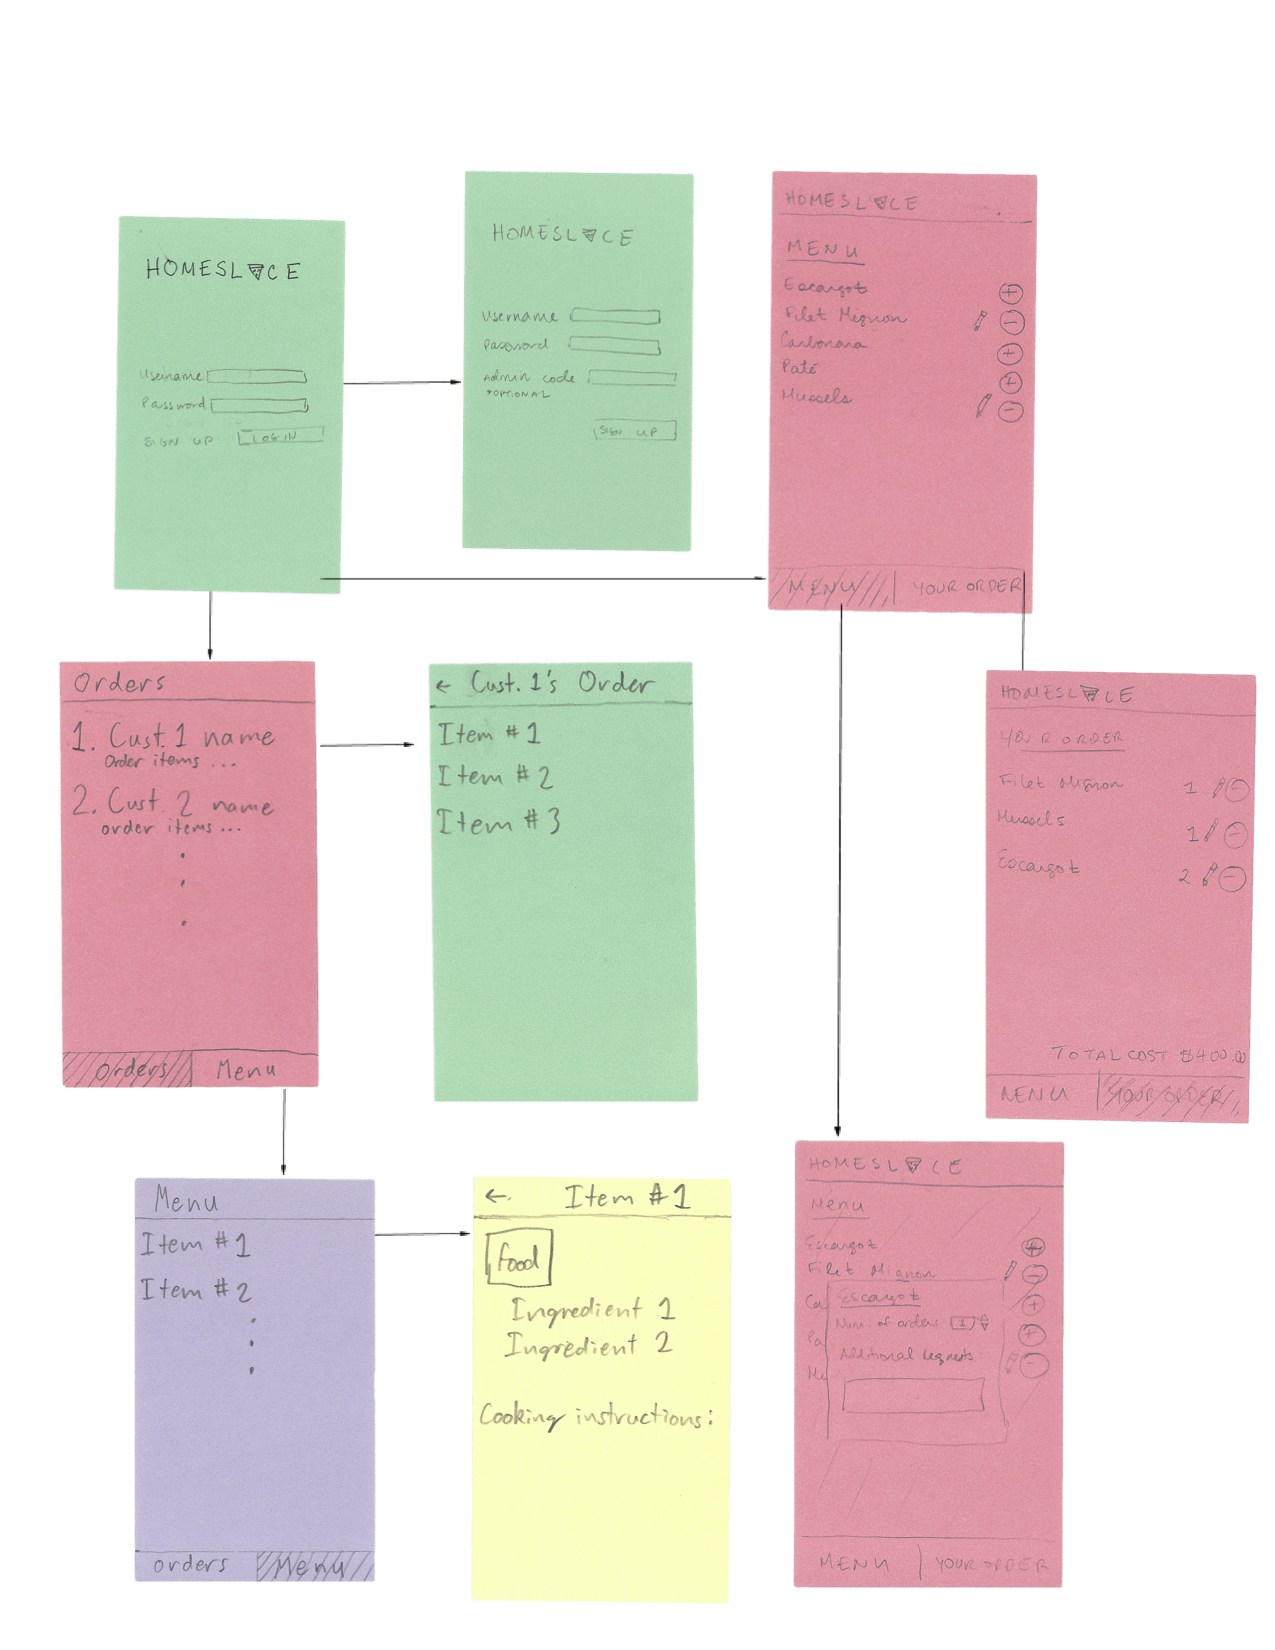 HOMESL CE
Username
Password
SIGN UP LOGIN
HOMESL CE
Username
Password
Admin code
*OPTIONAL
SIGN UP
HOMESL CE
MENU
Escargot
Filet Mignon
Carbonara
Paté
Mussels
MENU YOUR ORDER
Orders
1. Cust. 1 name
Order items ...
2. Cust. 2 name
order items ...
Orders Menu
← Cust. 1's Order
Item #1
Item #2
Item #3
HOMESL CE
YOUR ORDER
Filet Mignon 1
Mussels 1
Escargot 2
TOTAL COST $400.00
MENU YOUR ORDER
Menu
Item #1
Item #2
orders Menu
← Item #1
Food
Ingredient 1
Ingredient 2
Cooking instructions:
HOMESL CE
Menu
Escargot
Filet Mignon
Ca
Pa
Mu
Escargot
Num. of orders 1
Additional Requests:
MENU YOUR ORDER